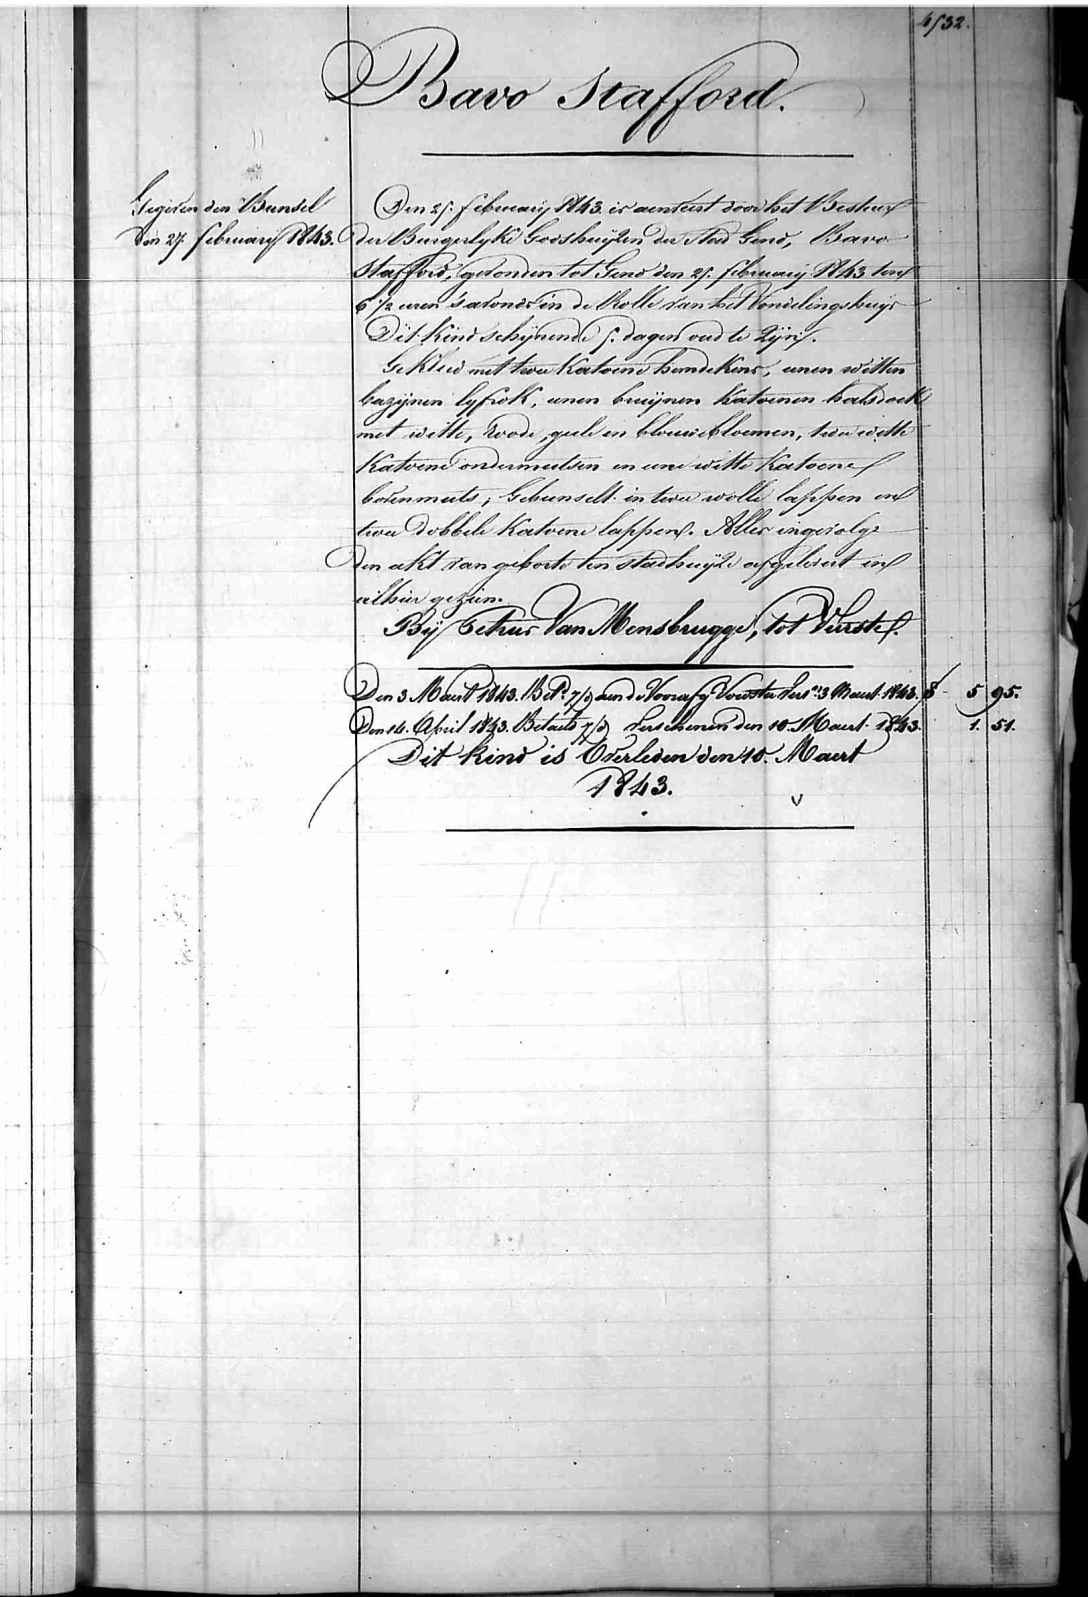 4532.
Bavo Stafford.
Gegeven den Bunsel
den 27 februarij 1843.
Den 25. februarij 1843. is aenveert door het Bestier
der Burgerlyke Godshuyzen der Stad Gend, Bavo
Stafford, gevonden tot Gend den 25. februarij 1843 ten
6 1/2 uren 's avonds in de Rolle van het Vondelingshuys
Dit kind schijnende 5. dagen oud te zijn.
Gekleed met twee katoene hemdekens, eenen witten
bazijnen lyfrok, eenen bruijnen katoenen halsdoek
met witte, roode, geele en blouwe bloemen, twee witte
katoene ondermutsen en eene witte katoene
bovenmuts; Gebunselt in twee wolle lappen en
twee dobbele katoene lappen. Alles ingevolge
den akt van geborte ten stadhuyze afgelevert en
alhier gezien.
Bij Petrus Van Mensbrugge, tot Vurste.
Den 3 Maert 1843. Betd. 7/d aen de Voorafg. Voedster Versn. 3 Maert 1843. f 5 95.
Den 14. April 1843. Betaeld 7/d Verschenen den 10. Maert 1843. 1. 51.
Dit kind is Overleden den 10. Maert
1843.